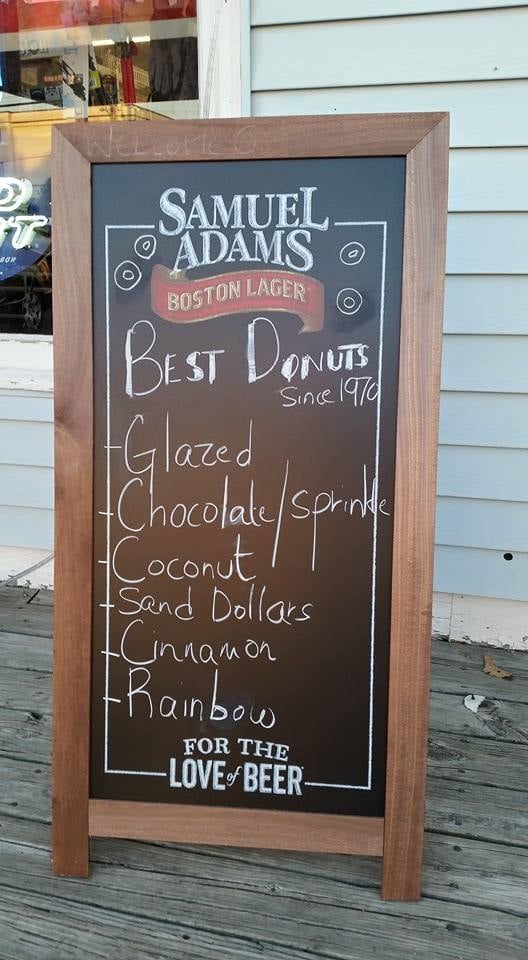 WELCOME
SAMUEL
ADAMS
BOSTON LAGER
BEST DONUTS
Since 1970
-Glazed
-Chocolate/sprinkle
-Coconut
-Sand Dollars
-Cinnamon
-Rainbow
FOR THE
LOVE of BEER